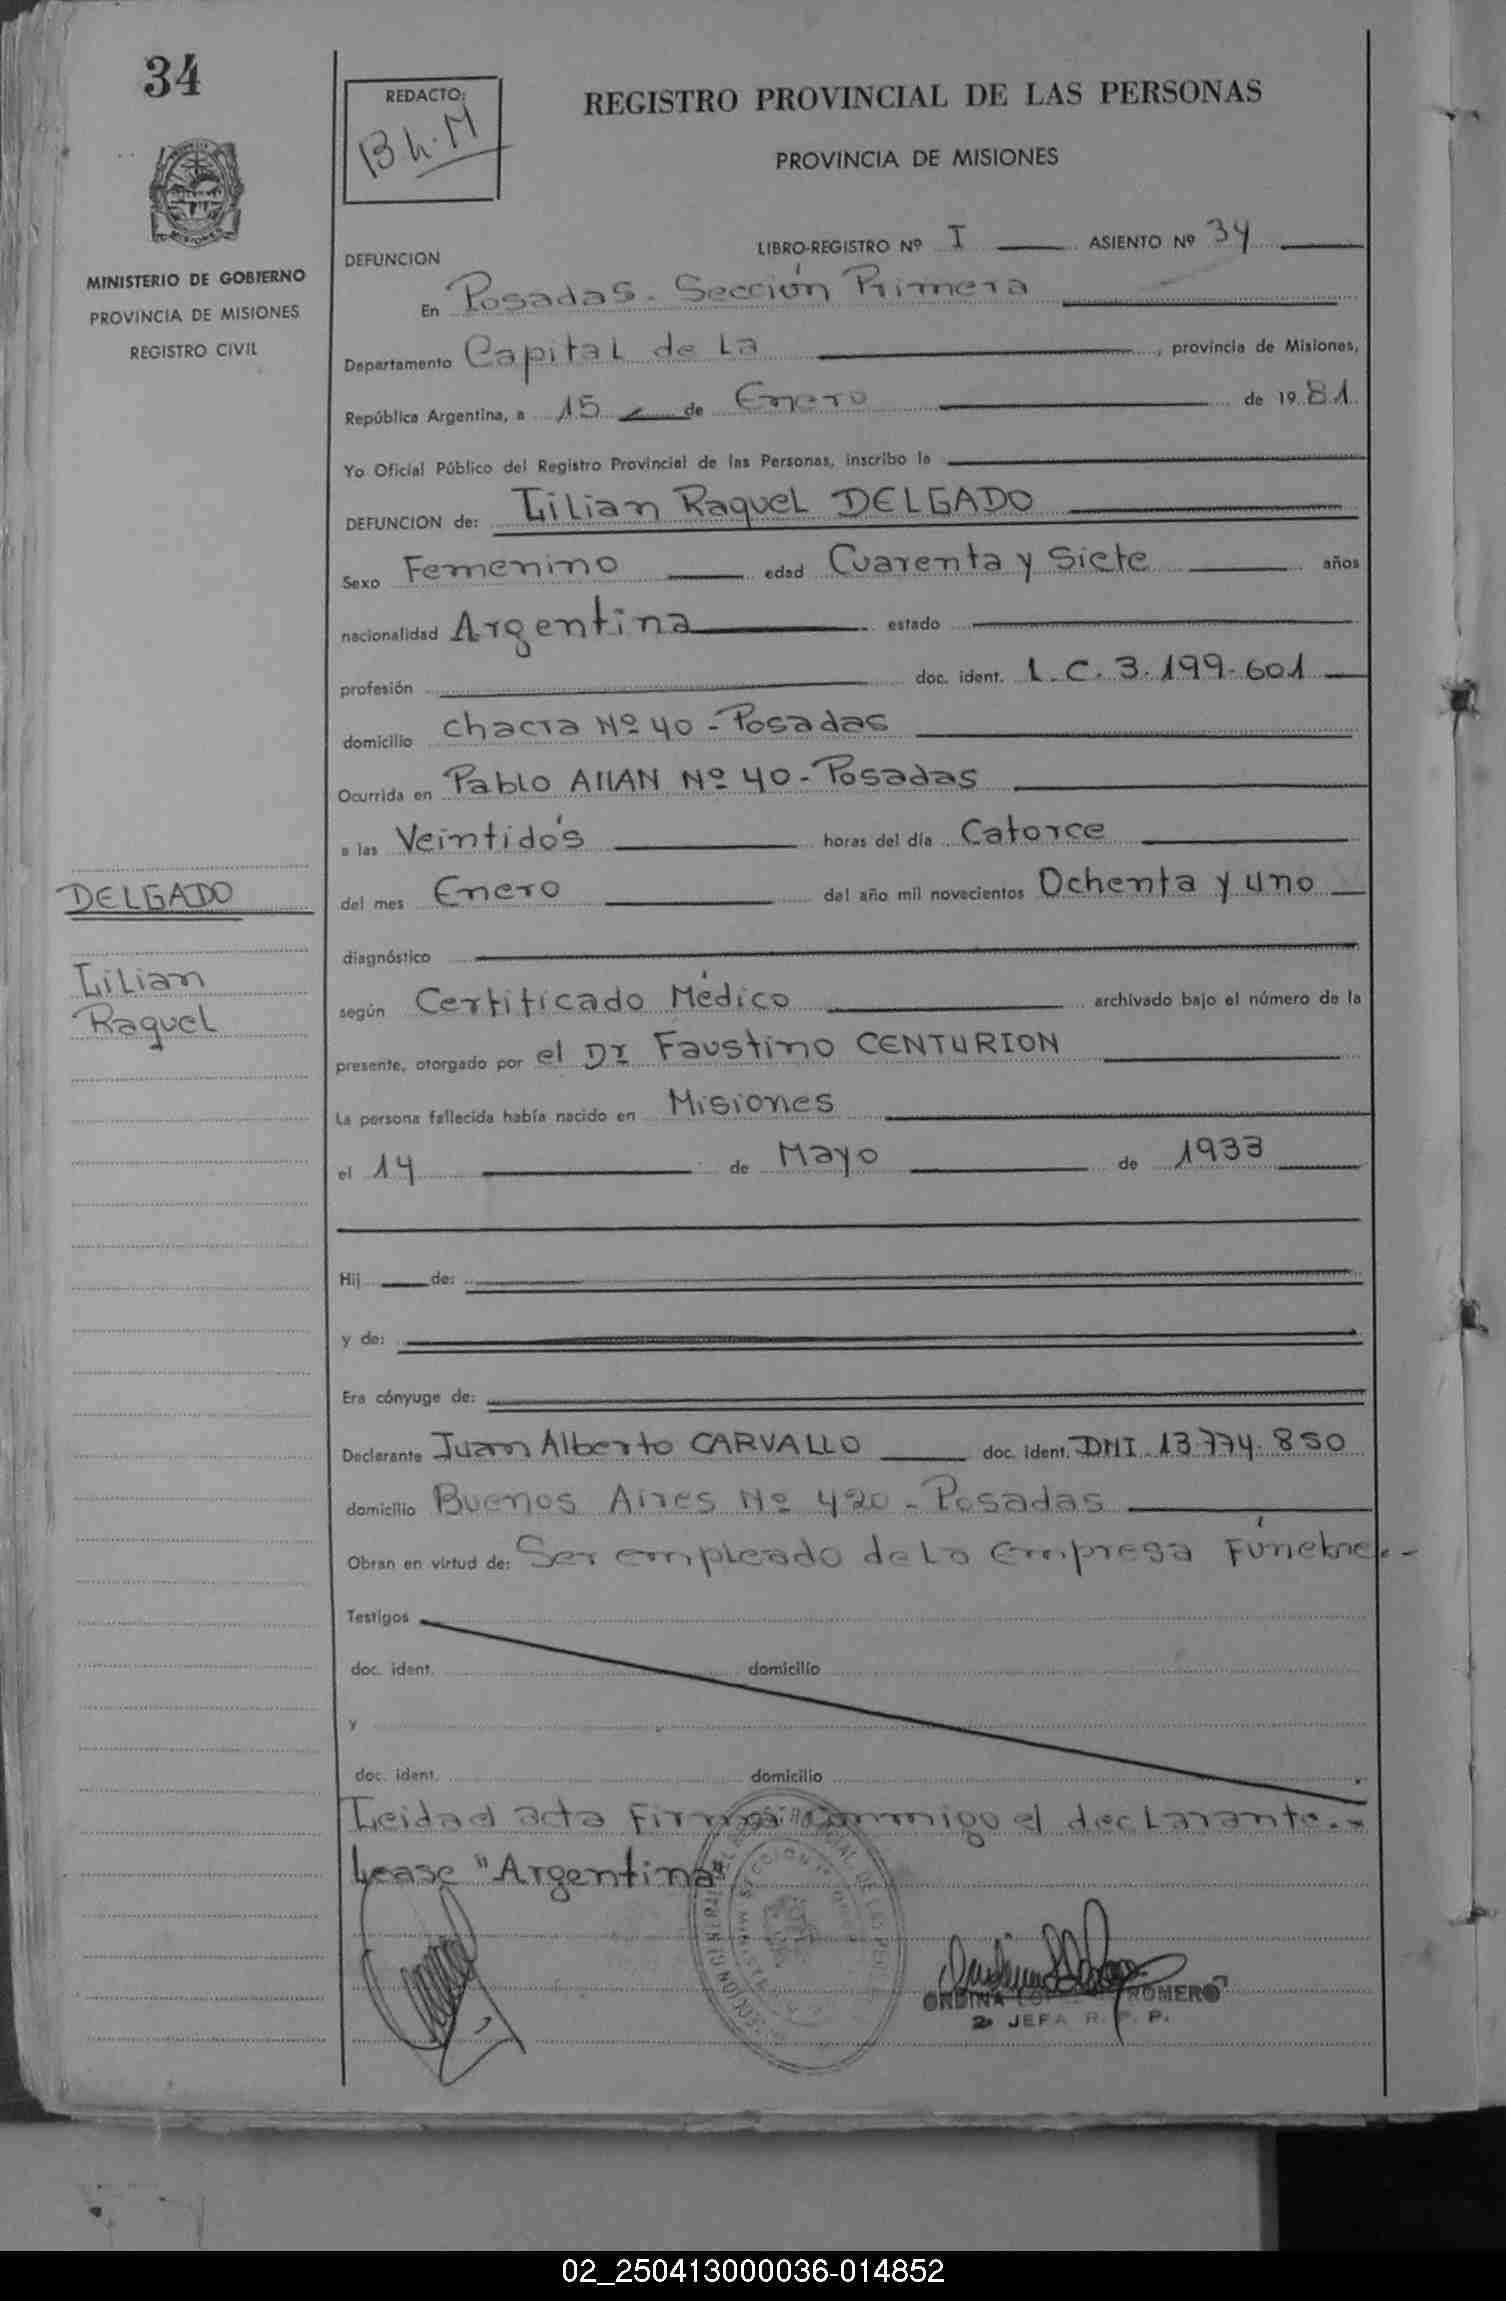 34
REDACTO:
B h. M
REGISTRO PROVINCIAL DE LAS PERSONAS
PROVINCIA DE MISIONES
MISIONES
MINISTERIO DE GOBIERNO
PROVINCIA DE MISIONES
REGISTRO CIVIL
DEFUNCION LIBRO-REGISTRO Nº I ASIENTO Nº 34
En Posadas. Sección Primera
Departamento Capital de La , provincia de Misiones,
República Argentina, a 15 de Enero de 1981
Yo Oficial Público del Registro Provincial de las Personas, inscribo la
DEFUNCION de: Lilian Raquel DELGADO
Sexo Femenino edad Cuarenta y Siete años
nacionalidad Argentina estado
profesión doc. ident. L.C. 3.199.601
domicilio chacra Nº 40 - Posadas
Ocurrida en Pablo AllAN Nº 40 - Posadas
a las Veintidós horas del día Catorce
del mes Enero del año mil novecientos Ochenta y uno
DELGADO
Lilian
Raquel
diagnóstico
según Certificado Médico archivado bajo el número de la
presente, otorgado por el Dr Faustino CENTURION
La persona fallecida había nacido en Misiones
el 14 de Mayo de 1933
Hij de:
y de:
Era cónyuge de:
Declarante Juan Alberto CARVALLO doc. ident. DNI 13.774.850
domicilio Buenos Aires Nº 420 - Posadas
Obran en virtud de: Ser empleado de La empresa Fúnebre.-
Testigos
doc. ident. domicilio
y
doc. ident. domicilio
Leidad el acta Firma conmigo el declarante.-
Lease "Argentina"
ORDINA ROMERO
2ª JEFA R. P. P.
02_250413000036-014852